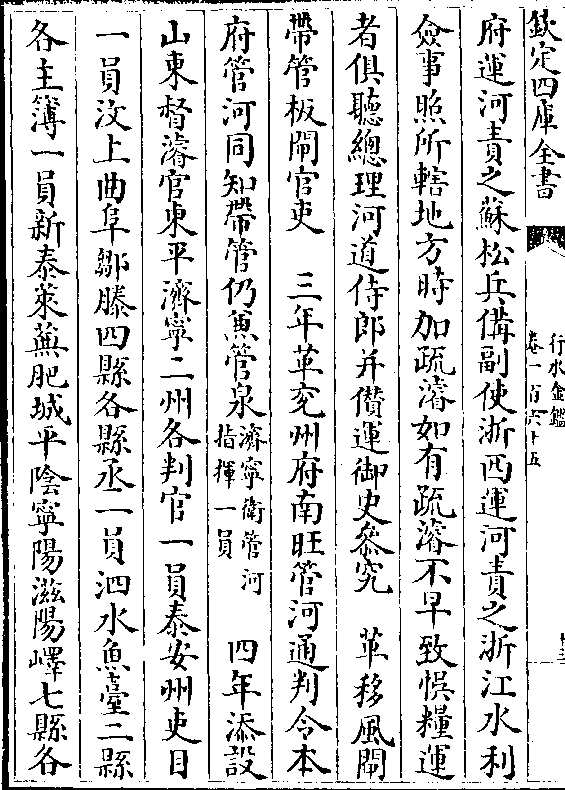 欽定四庫全書
行水金鑑
卷一百六十五
府運河責之蘇松兵備副使浙西運河責之浙江水利
僉事照所轄地方時加疏濬如有疏濬不早致悞糧運
者俱聽總理河道侍郎并儹運御史叅究　革移風閘
帶管板閘官吏　三年革兖州府南旺管河通判令本
府管河同知帶管仍兼管泉濟寧衛管河指揮一員　四年添設
山東督濬官東平濟寧二州各判官一員泰安州吏目
一員汶上曲阜鄒滕四縣各縣丞一員泗水魚臺二縣
各主簿一員新泰萊蕪肥城平陰寧陽滋陽嶧七縣各